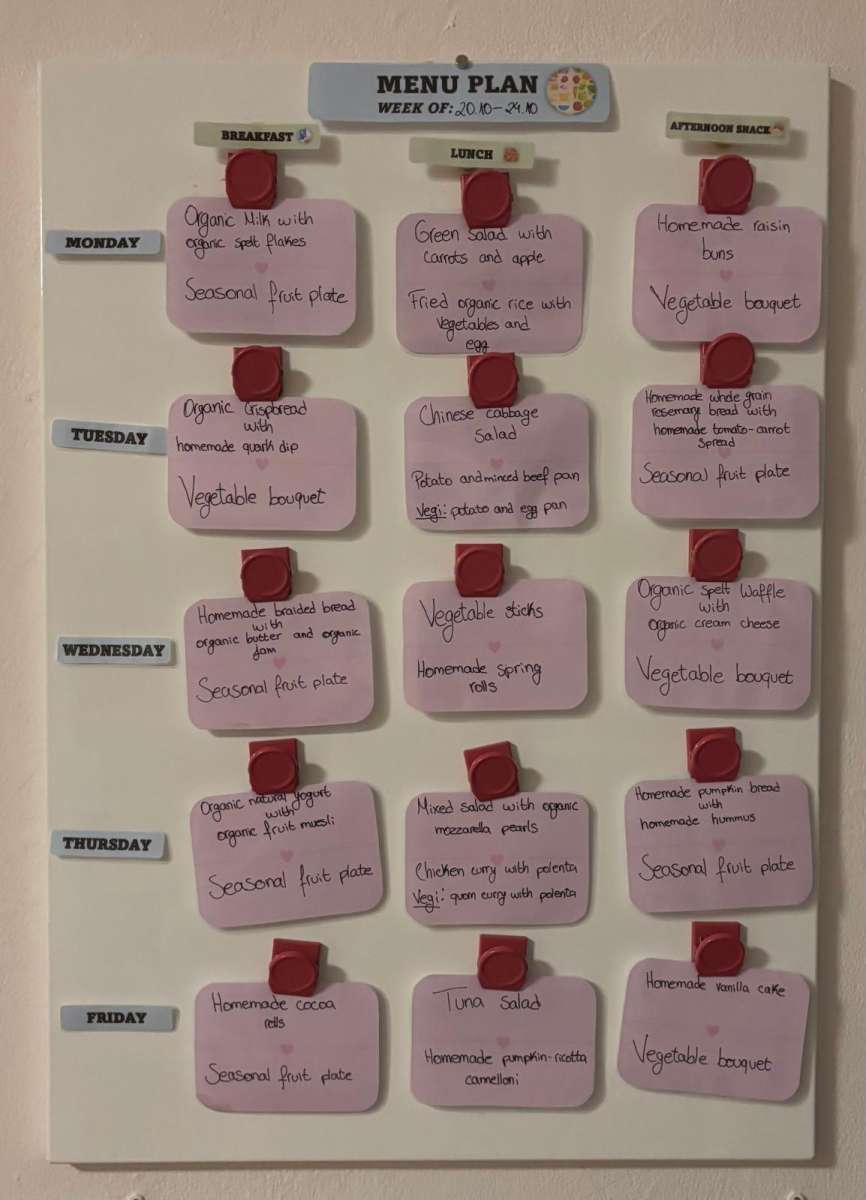 MENU PLAN
WEEK OF: 20.10-24.10
BREAKFAST
LUNCH
AFTERNOON SNACK
MONDAY
Organic Milk with
organic spelt flakes
Seasonal fruit plate
Green salad with
carrots and apple
Fried organic rice with
vegetables and
egg
Homemade raisin
buns
Vegetable bouquet
TUESDAY
Organic Crispbread
with
homemade quark dip
Vegetable bouquet
Chinese cabbage
Salad
Potato and minced beef pan
Vegi: potato and egg pan
Homemade whole grain
rosemary bread with
homemade tomato-carrot
Spread
Seasonal fruit plate
WEDNESDAY
Homemade braided bread
with
organic butter and organic
jam
Seasonal fruit plate
Vegetable sticks
Homemade spring
rolls
Organic spelt Waffle
with
organic cream cheese
Vegetable bouquet
THURSDAY
Organic natural yogurt
with
organic fruit muesli
Seasonal fruit plate
Mixed salad with organic
mozzarella pearls
Chicken curry with polenta
Vegi: quorn curry with polenta
Homemade pumpkin bread
with
homemade hummus
Seasonal fruit plate
FRIDAY
Homemade cocoa
rolls
Seasonal fruit plate
Tuna Salad
Homemade pumpkin-ricotta
cannelloni
Homemade vanilla cake
Vegetable bouquet